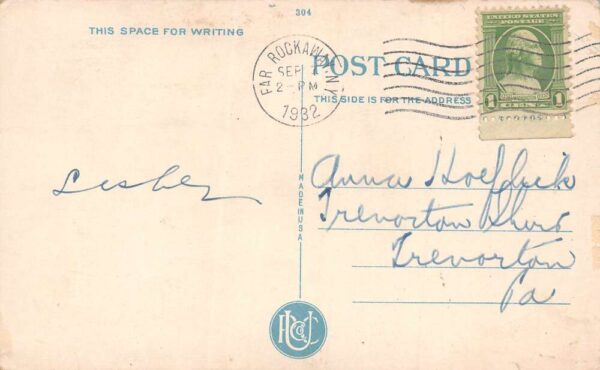 304
THIS SPACE FOR WRITING
POST CARD
THIS SIDE IS FOR THE ADDRESS
FAR ROCKAWAY N.Y.
SEP
2-PM
1932
UNITED STATES POSTAGE
1 1
MADE IN USA
Lesher
Anna Hoefdick
Trevorton
Trevorton
Pa